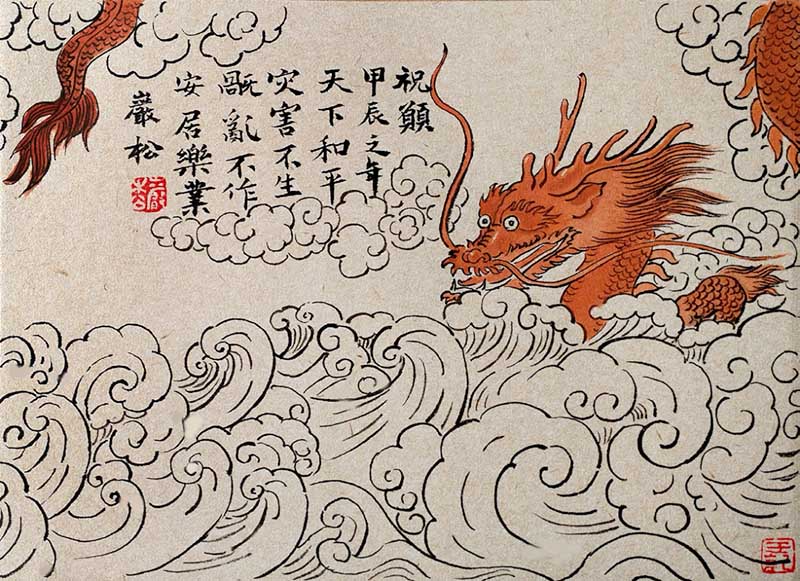 祝願
甲辰之年
天下和平
灾害不生
旤亂不作
安居樂業
嚴松